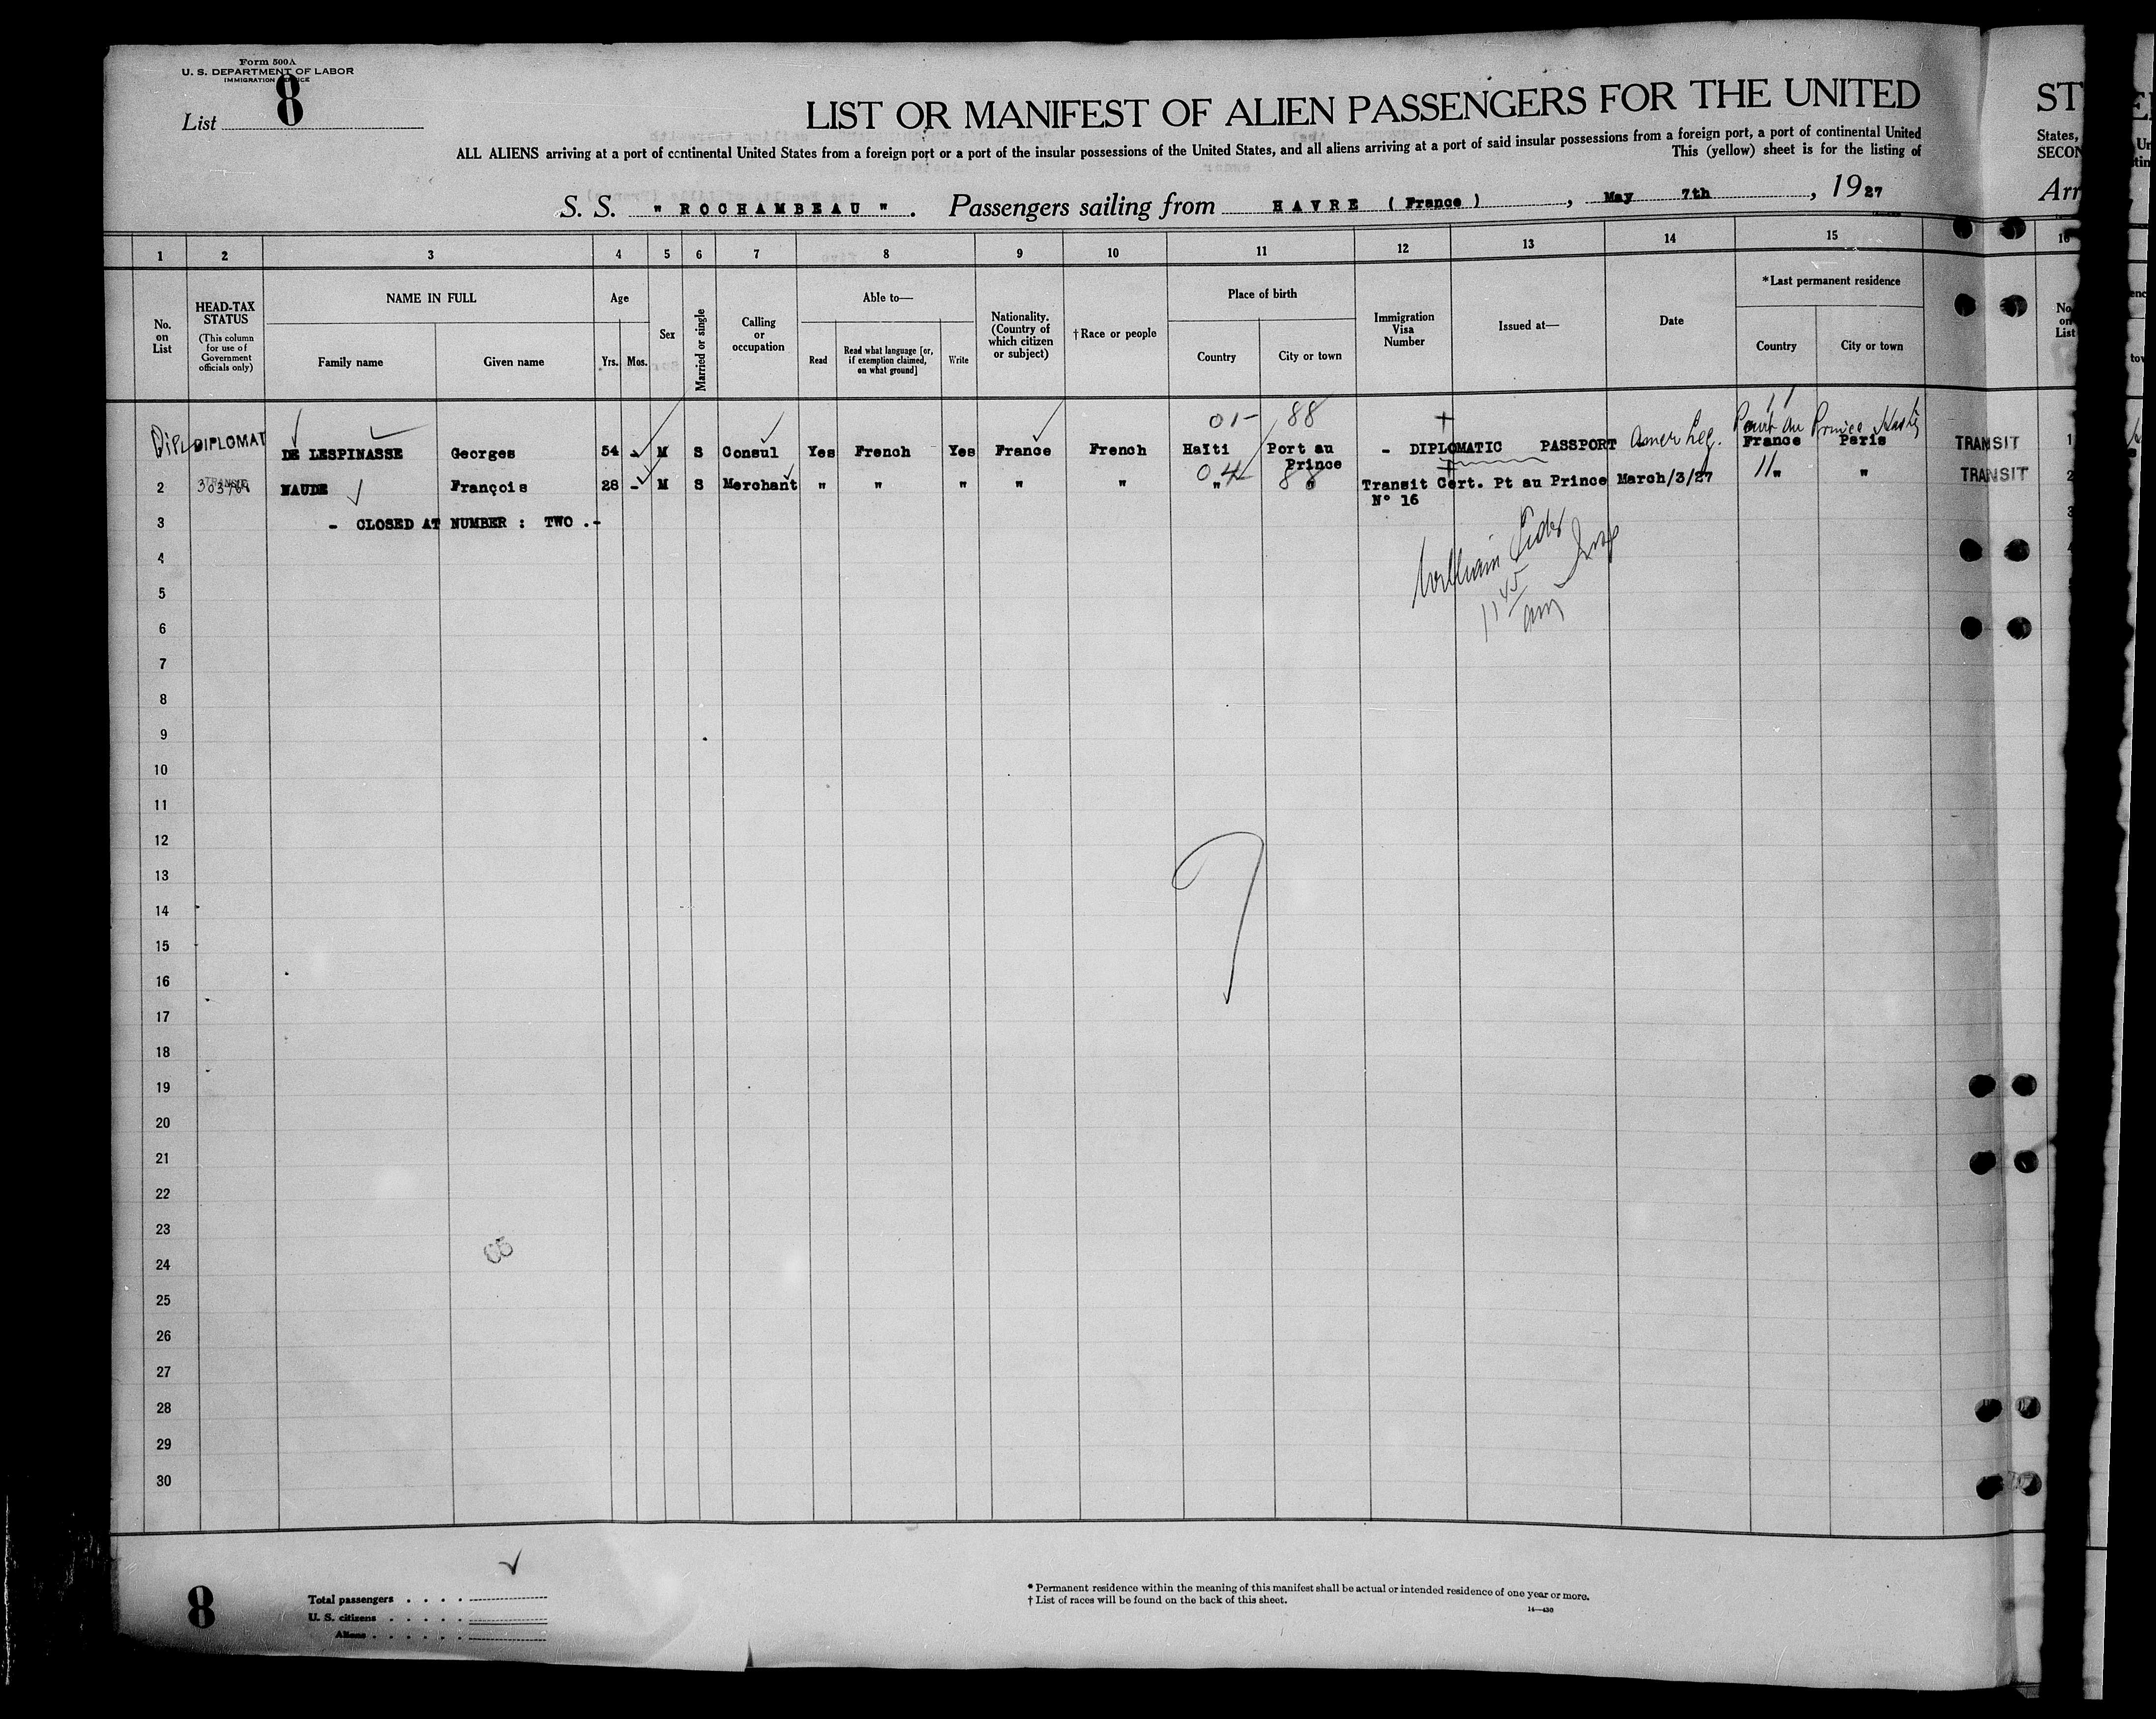 Form 500A
U. S. DEPARTMENT OF LABOR
IMMIGRATION SERVICE
List 8
LIST OR MANIFEST OF ALIEN PASSENGERS FOR THE UNITED
ST
ALL ALIENS arriving at a port of continental United States from a foreign port or a port of the insular possessions of the United States, and all aliens arriving at a port of said insular possessions from a foreign port, a port of continental United
States,
This (yellow) sheet is for the listing of
SECON
S. S. " ROCHAMBEAU " . Passengers sailing from HAVRE ( France ) , May 7th , 1927
Arr
1 2 3 4 5 6 7 8 9 10 11 12 13 14 15 16
No. on List
HEAD-TAX STATUS
(This column for use of Government officials only)
NAME IN FULL
Family name
Given name
Age
Yrs. Mos.
Sex
Married or single
Calling or occupation
Able to—
Read
Read what language [or, if exemption claimed, on what ground]
Write
Nationality. (Country of which citizen or subject)
†Race or people
Place of birth
Country
City or town
Immigration Visa Number
Issued at—
Date
*Last permanent residence
Country
City or town
No. on List
01- 88
DIPL DIPLOMAT DE LESPINASSE Georges 54 - M S Consul Yes French Yes France French Haïti Port au Prince - DIPLOMATIC PASSPORT Amer Leg. France Paris TRANSIT 1
04 88 11
2 TRANSIT NAUDE François 28 - M S Merchant " " " " " " " Transit Cert. Pt au Prince March/3/27 " " TRANSIT 2
N° 16
3 - CLOSED AT NUMBER : TWO .- 3
William
4
11 45/am
5
6
7
8
9
10
11
12
13
14
15
16
17
18
19
20
21
22
23
24
25
26
27
28
29
30
8
Total passengers . . . .
U. S. citizens . . . . .
Aliens . . . . . .
* Permanent residence within the meaning of this manifest shall be actual or intended residence of one year or more.
† List of races will be found on the back of this sheet.
14—430